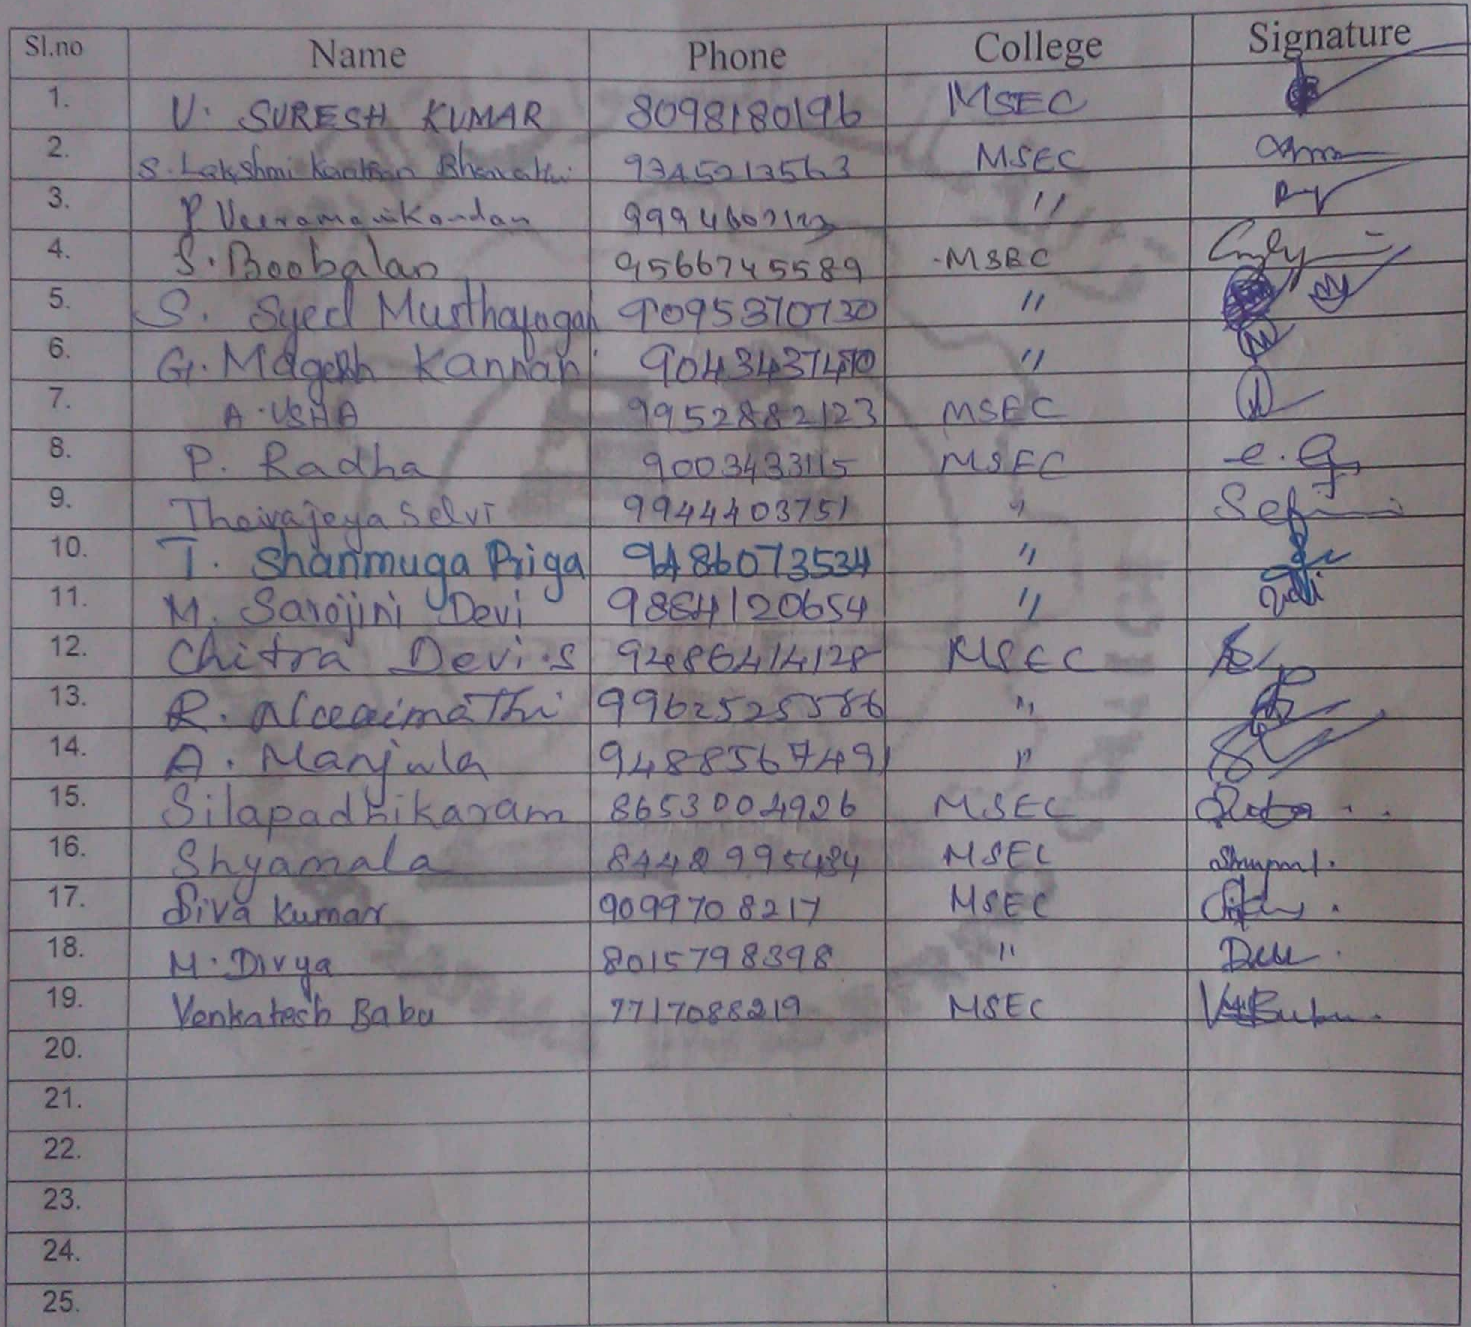 Sl.no Name Phone College Signature
1. V. SURESH KUMAR 8098180196 MSEC
2. S. Lakshmi 9345213563 MSEC
3. P Veeramanikandan "
4. S. Boobalan 9566745589 MSEC
5. S. Syed 9095370730 "
6. G. Magesh Kannan "
7. A. USHA 9952882123 MSEC
8. P. Radha 9003433115 MSEC
9. Selvi 9944403751 "
10. T. Shanmuga Priga 9486073534 "
11. M. Sarojini Devi 9884120654 "
12. Chitra Devi.S 9486414128 MSEC
13. R. 9962525586 "
14. A. Manjula 9488567491 "
15. Silapadhikaram 8653004926 MSEC
16. Shyamala MSEC
17. Siva Kumar 9099708217 MSEC
18. M. Divya 8015798398 "
19. Venkatesh Babu 7717088219 MSEC
20.
21.
22.
23.
24.
25.